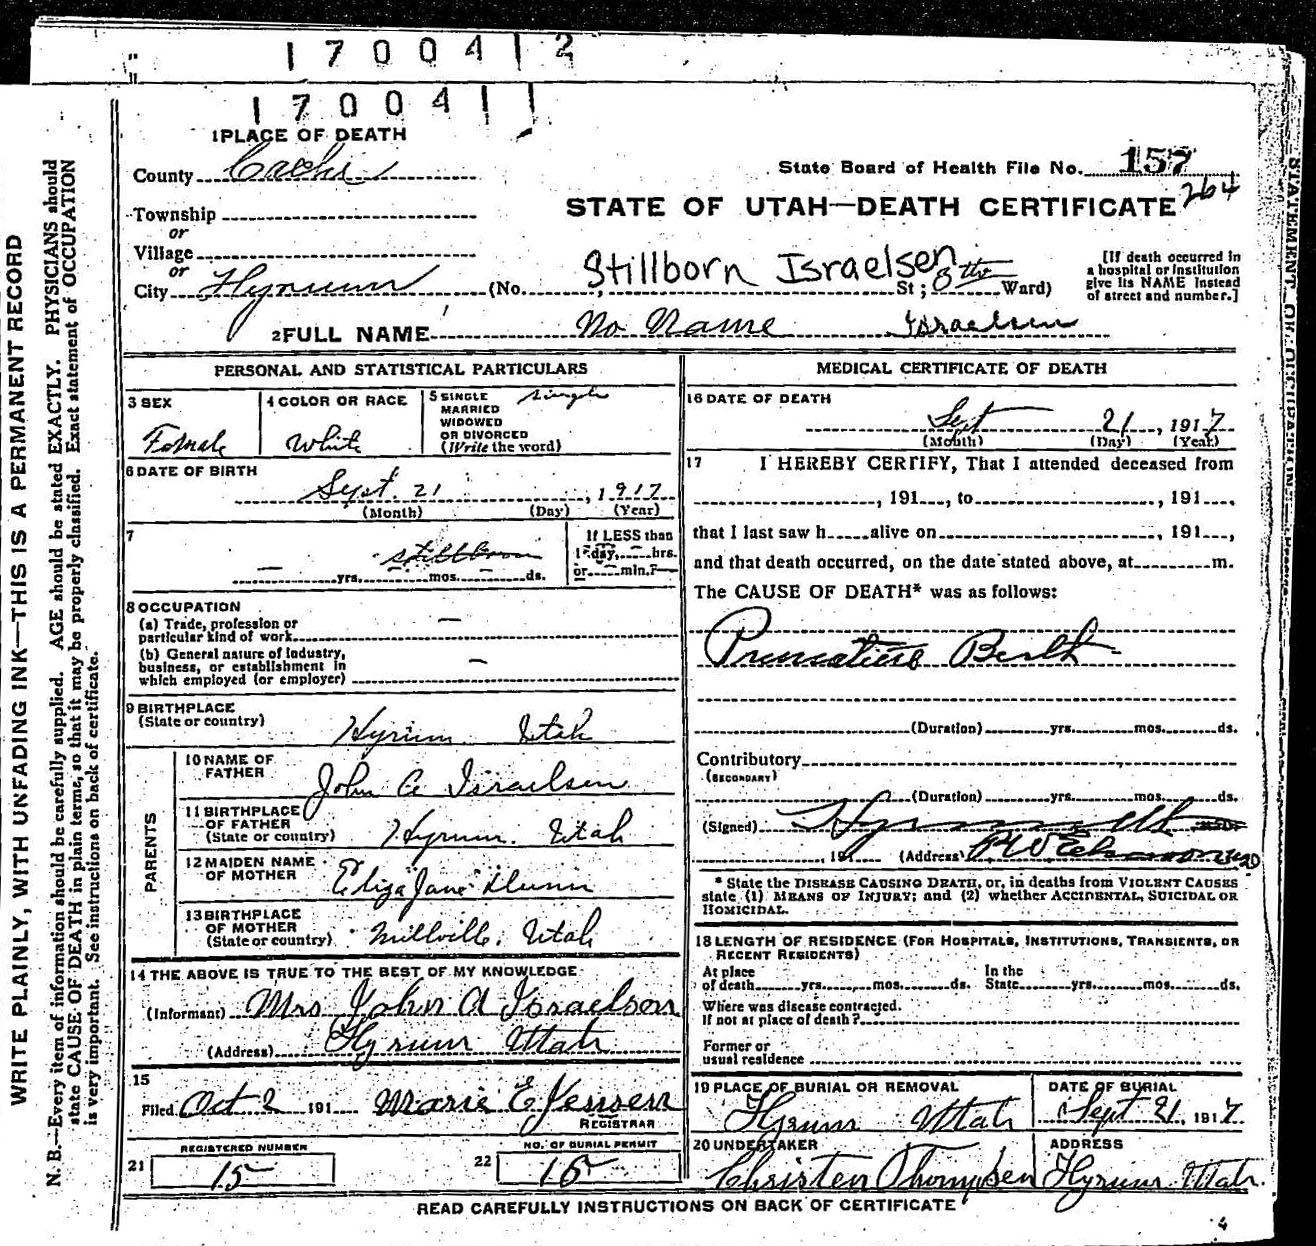 170041 2
170041 1
1 PLACE OF DEATH
County Cache
State Board of Health File No. 157
264
STATE OF UTAH—DEATH CERTIFICATE
Township
or
Village
or
City Hyrum (No. St; 8th Ward)
Stillborn Israelsen
[If death occurred in
a hospital or institution
give its NAME instead
of street and number.]
2 FULL NAME No Name Israelsen
PERSONAL AND STATISTICAL PARTICULARS
3 SEX
Female
4 COLOR OR RACE
White
5 SINGLE
MARRIED
WIDOWED
OR DIVORCED
(Write the word)
single
6 DATE OF BIRTH
Sept. 21, 1917
(Month) (Day) (Year)
7
stillborn
yrs. mos. ds.
If LESS than
1 day, hrs.
or min.?
8 OCCUPATION
(a) Trade, profession or
particular kind of work
(b) General nature of industry,
business, or establishment in
which employed (or employer)
9 BIRTHPLACE
(State or country)
Hyrum Utah
PARENTS
10 NAME OF
FATHER
John A Israelsen
11 BIRTHPLACE
OF FATHER
(State or country)
Hyrum. Utah
12 MAIDEN NAME
OF MOTHER
Eliza Jane Dunn
13 BIRTHPLACE
OF MOTHER
(State or country)
Millville, Utah
14 THE ABOVE IS TRUE TO THE BEST OF MY KNOWLEDGE
(Informant) Mrs John A Israelsen
(Address) Hyrum Utah
15
Filed Oct 2 191 Marie E Jensen
REGISTRAR
REGISTERED NUMBER
21 15
NO. OF BURIAL PERMIT
22 15
MEDICAL CERTIFICATE OF DEATH
16 DATE OF DEATH
Sept 21, 1917
(Month) (Day) (Year)
17 I HEREBY CERTIFY, That I attended deceased from
, 191 , to , 191 ,
that I last saw h alive on , 191 ,
and that death occurred, on the date stated above, at m.
The CAUSE OF DEATH* was as follows:
Premature Birth
(Duration) yrs. mos. ds.
Contributory
(SECONDARY)
(Duration) yrs. mos. ds.
(Signed) Hyrum Utah
, 191 (Address)
* State the DISEASE CAUSING DEATH, or, in deaths from VIOLENT CAUSES
state (1) MEANS OF INJURY; and (2) whether ACCIDENTAL, SUICIDAL OR
HOMICIDAL.
18 LENGTH OF RESIDENCE (FOR HOSPITALS, INSTITUTIONS, TRANSIENTS, OR
RECENT RESIDENTS)
At place
of death yrs. mos. ds.
In the
State yrs. mos. ds.
Where was disease contracted,
If not at place of death?
Former or
usual residence
19 PLACE OF BURIAL OR REMOVAL
Hyrum Utah
DATE OF BURIAL
Sept 21 1917
20 UNDERTAKER
Christen Thompsen
ADDRESS
Hyrum Utah.
READ CAREFULLY INSTRUCTIONS ON BACK OF CERTIFICATE
4
WRITE PLAINLY, WITH UNFADING INK—THIS IS A PERMANENT RECORD
N. B.—Every item of information should be carefully supplied. AGE should be stated EXACTLY. PHYSICIANS should
state CAUSE OF DEATH in plain terms, so that it may be properly classified. Exact statement of OCCUPATION
is very important. See instructions on back of certificate.